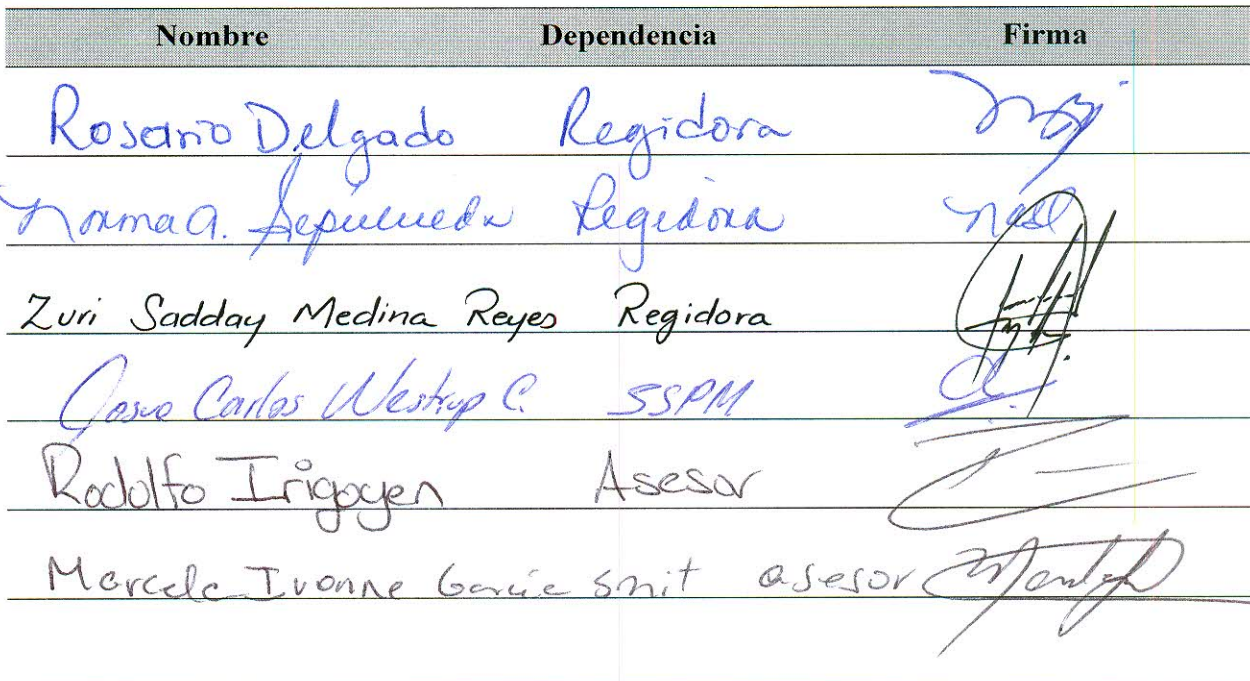 Nombre Dependencia Firma
Rosario Delgado Regidora
Norma A. Sepulveda Regidora
Zuri Sadday Medina Reyes Regidora
Carlos Westrup C. SSPM
Rodolfo Irigoyen Asesor
Marcela Ivonne Garcia Smit asesor